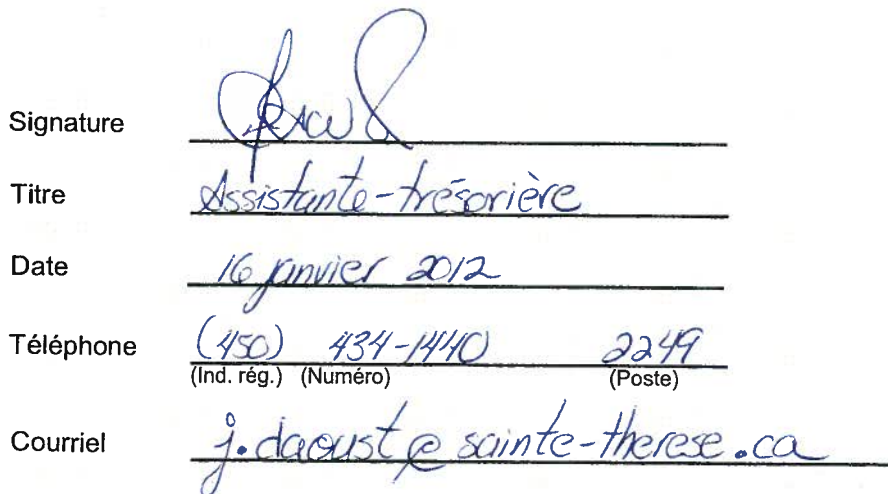 Signature
Titre Assistante-trésorière
Date 16 janvier 2012
Téléphone (450) 434-1440 2249
(Ind. rég.) (Numéro) (Poste)
Courriel j.daoust@sainte-therese.ca